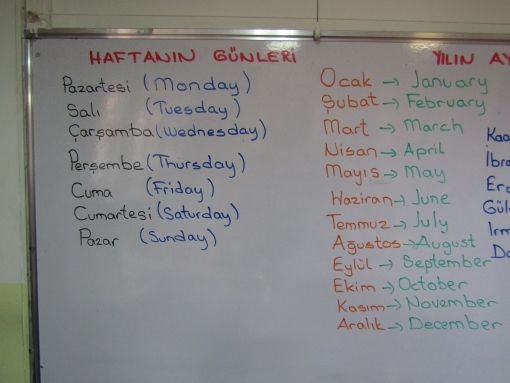 HAFTANIN GÜNLERİ
Pazartesi (Monday)
Salı (Tuesday)
Çarşamba (Wednesday)
Perşembe (Thursday)
Cuma (Friday)
Cumartesi (Saturday)
Pazar (Sunday)
YILIN AY
Ocak → January
Şubat → February
Mart → March
Nisan → April
Mayıs → May
Haziran → June
Temmuz → July
Ağustos → August
Eylül → September
Ekim → October
Kasım → November
Aralık → December